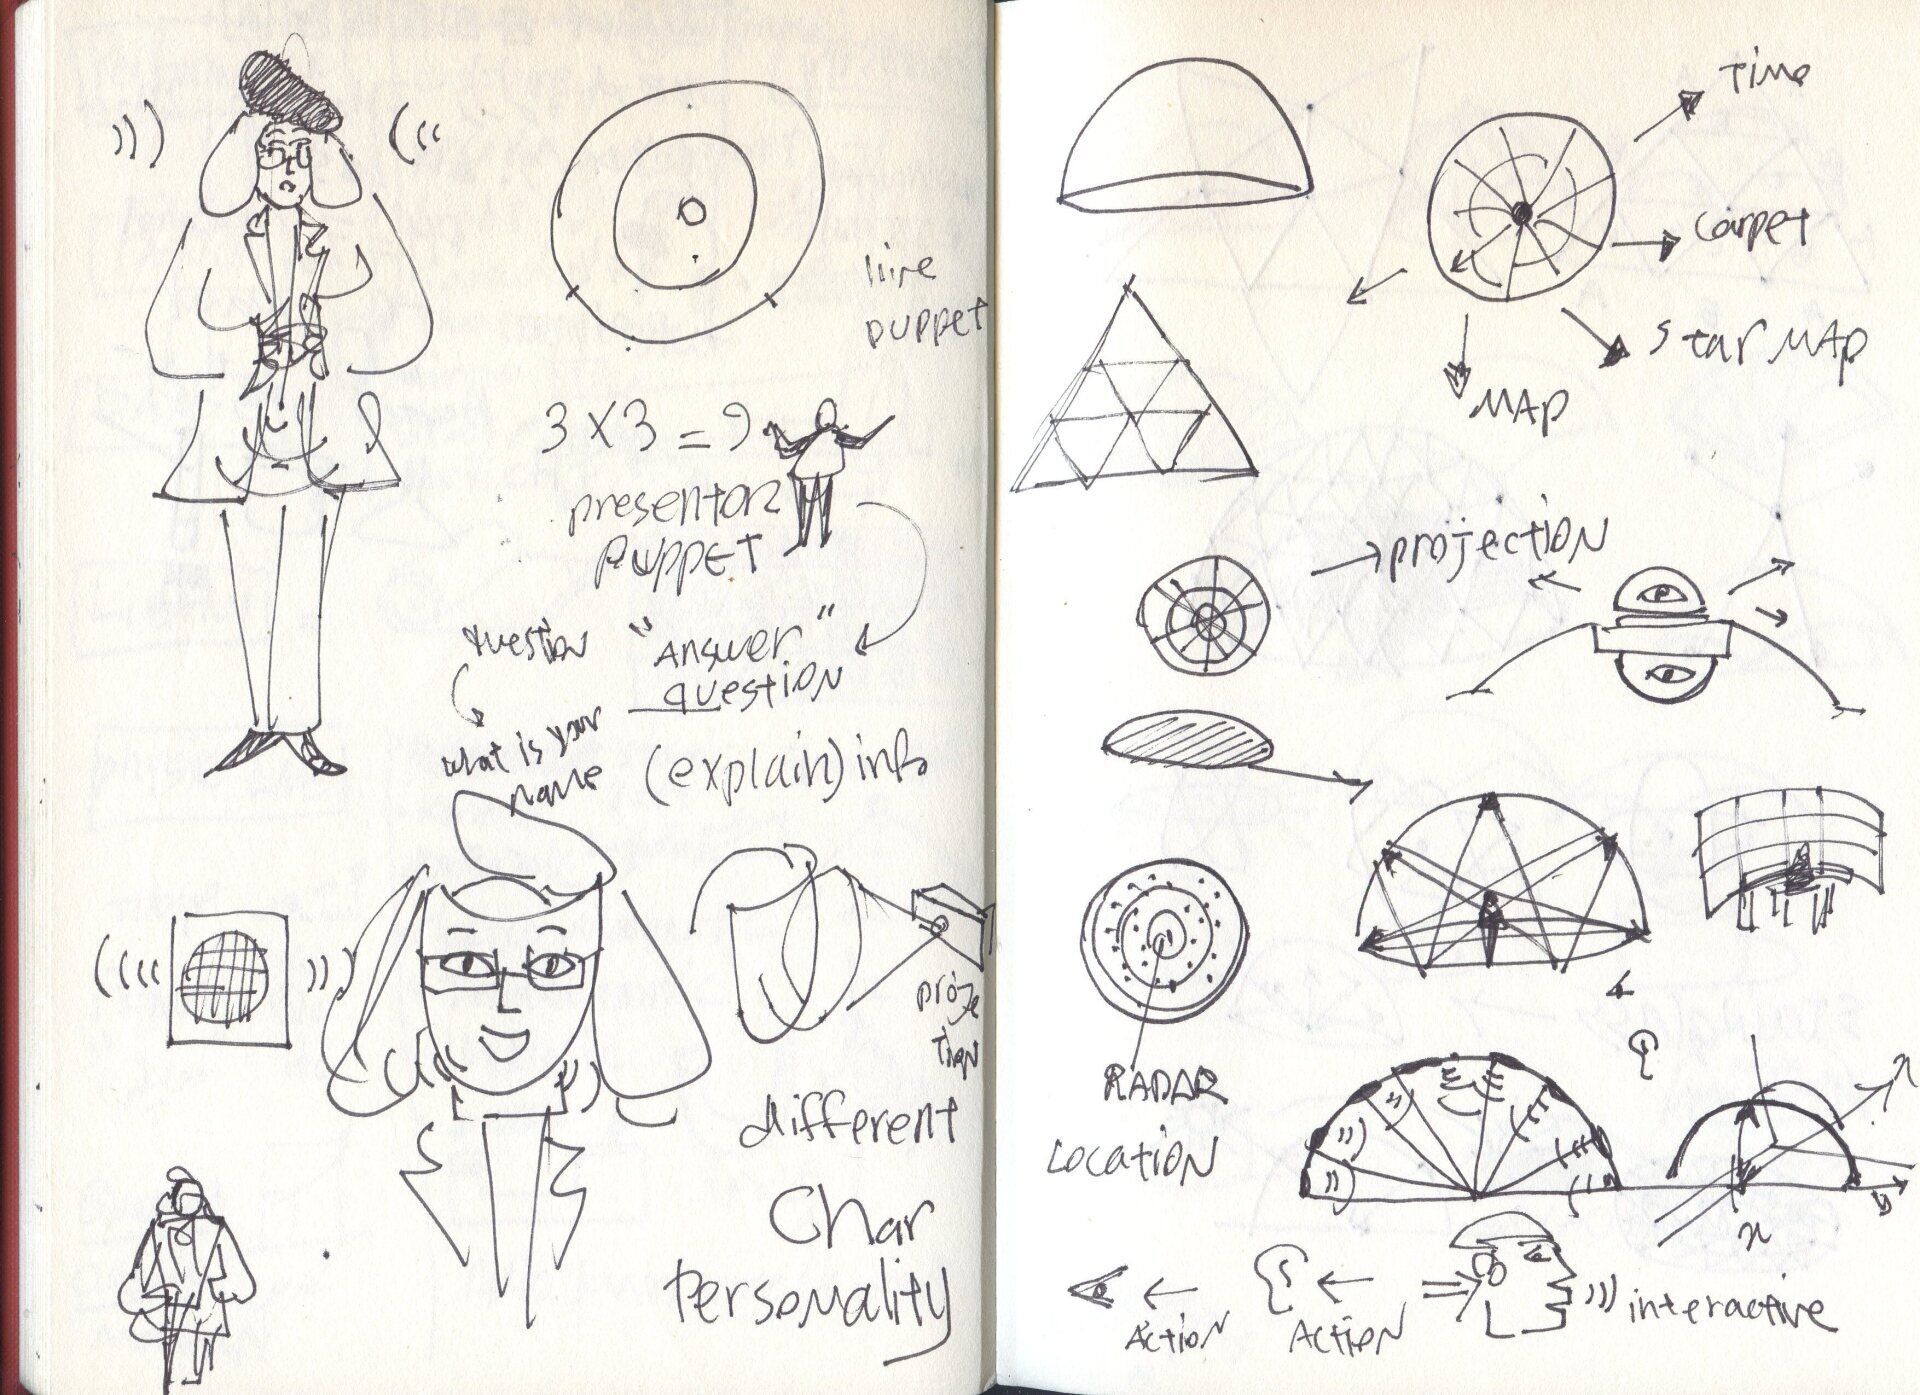 live
puppet
3 x 3 = 9
presentor
puppet
question
"Answer"
question
what is your
name
(explain) info
proje
tion
different
Char
Personality
Time
carpet
star MAP
MAP
projection
RADAR
Location
x
y
x
Action
Action
interactive